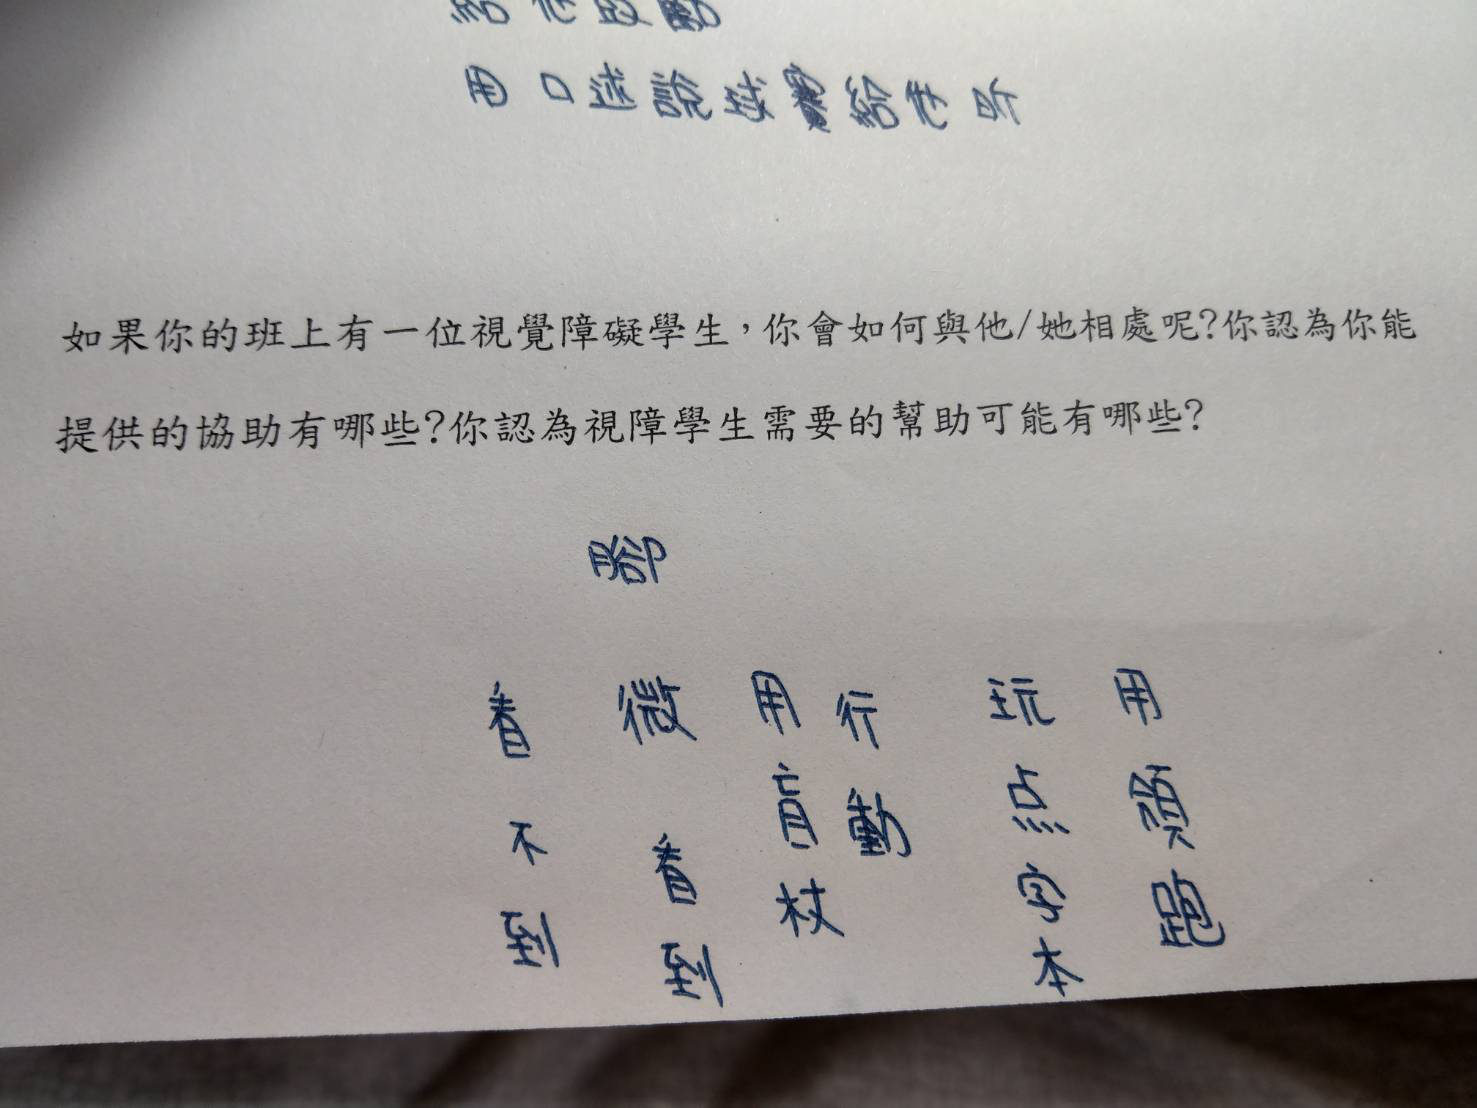 給他啟動
用口述說球賽給他听
如果你的班上有一位視覺障礙學生，你會如何與他/她相處呢?你認為你能
提供的協助有哪些?你認為視障學生需要的幫助可能有哪些?
腳
看不到
微看到
用盲杖
行動
玩点字本
用領跑